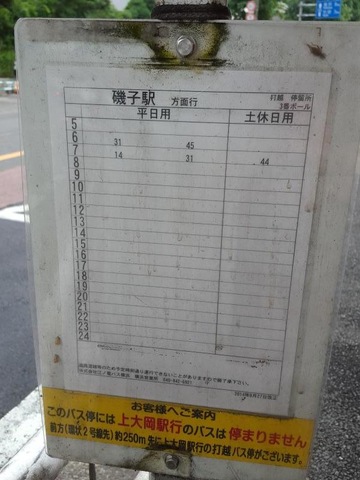 磯子駅 方面行
打越 停留所
3番ポール
平日用 土休日用
5
6 31 45
7 14 31 44
8
9
10
11
12
13
14
15
16
17
18
19
20
21
22
23
24
お客様へご案内
このバス停には上大岡駅行のバスは停まりません
前方(環状2号線先)約250m先に上大岡駅行の打越バス停がございます。